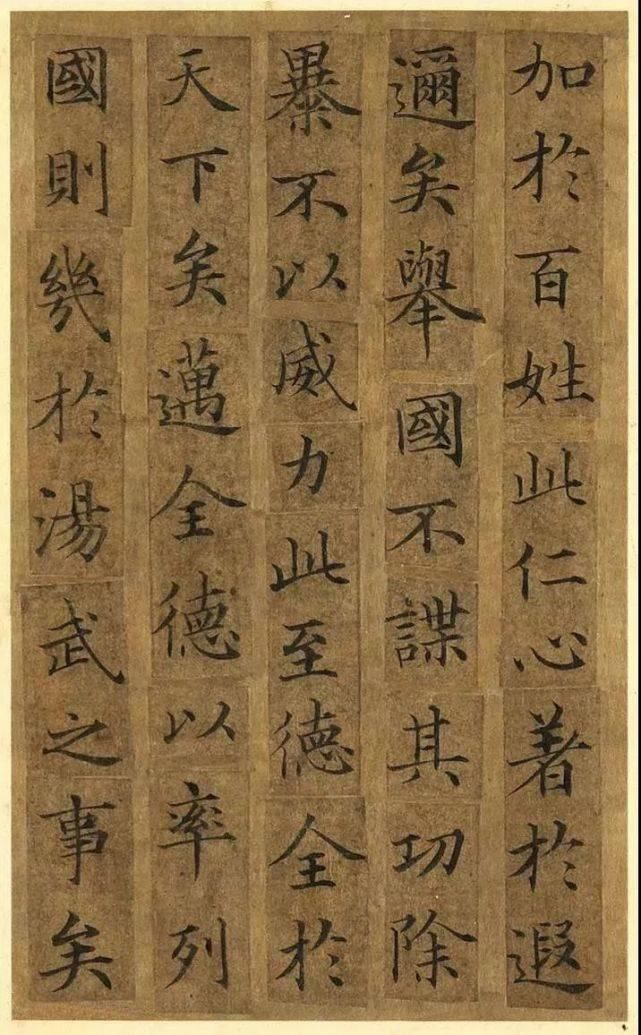 加於百姓此仁心著於遐
邇矣舉國不謀其功除
暴不以威力此至德全於
天下矣邁全德以率列
國則幾於湯武之事矣